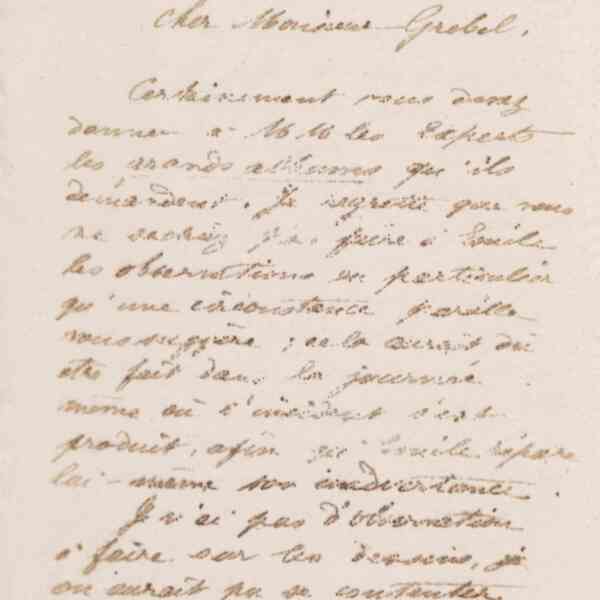 Cher Monsieur Grebel,
Certainement vous devez
donner à MM les Experts
les grands albums qu'ils
demandent. Je regrette que vous
ne sachiez pas faire à Emile
les observations en particulier
qu'une circonstance pareille
vous suggère ; cela aurait dû
être fait dans la journée
même où l'incident s'est
produit, afin qu'Emile répare
lui-même son inadvertance.
Je n'ai pas d'observation
à faire sur les dessins,
on aurait pu se contenter